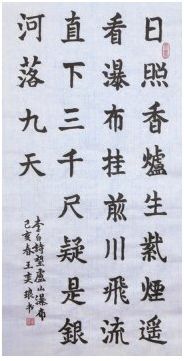 日照香爐生紫煙遥
看瀑布挂前川飛流
直下三千尺疑是銀
河落九天
李白詩望廬山瀑布
己亥春王奕璇书